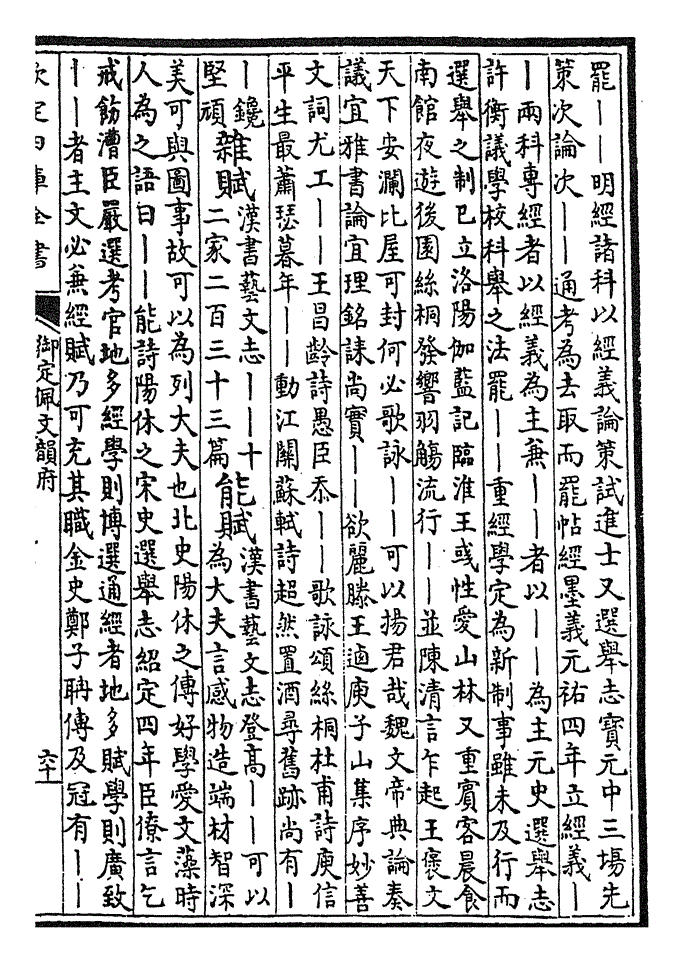 罷——明經諸科以經義論策試進士又選舉志寶元中三場先
策次論次——通考為去取而罷帖經墨義元祐四年立經義—
—兩科專經者以經義為主兼——者以——為主元史選舉志
許衡議學校科舉之法罷——重經學定為新制事雖未及行而
選舉之制已立洛陽伽藍記臨淮王彧性愛山林又重賓客晨食
南館夜遊後園絲桐發響羽觴流行——並陳清言乍起王褒文
天下安瀾比屋可封何必歌詠——可以揚君哉魏文帝典論奏
議宜雅書論宜理銘誄尚實——欲麗滕王逌庾子山集序妙善
文詞尤工——王昌齡詩愚臣忝——歌詠頌絲桐杜甫詩庾信
平生最蕭瑟暮年——動江關蘇軾詩超然置酒尋舊跡尚有—
—鑱
堅頑
雜賦
漢書藝文志——十
二家二百三十三篇
能賦
漢書藝文志登高——可以
為大夫言感物造端材智深
美可與圖事故可以為列大夫也北史陽休之傳好學愛文藻時
人為之語曰——能詩陽休之宋史選舉志紹定四年臣僚言乞
戒飭漕臣嚴選考官地多經學則博選通經者地多賦學則廣致
——者主文必兼經賦乃可充其職金史鄭子聃傳及冠有——
欽定四庫全書
御定佩文韻府
六十